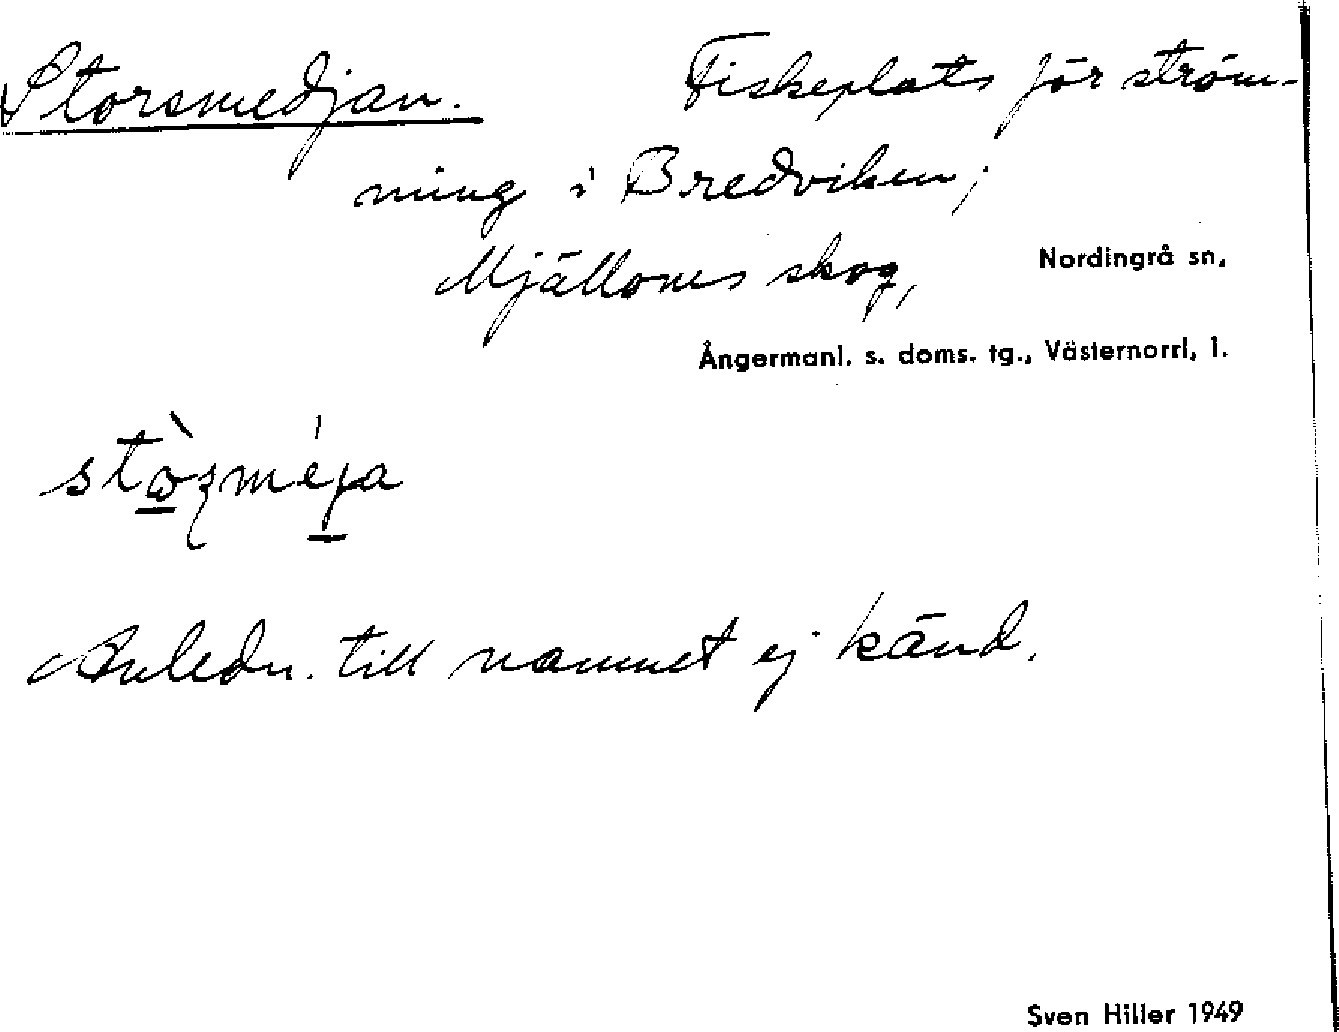 Storsmedjan. Fiskeplats för ström-
ning i Bredviken;
Mjälloms skog, Nordingrå sn,
Ångermanl. s. doms. tg., Västernorrl, l.
Anledn. till namnet ej känd.
Sven Hiller 1949